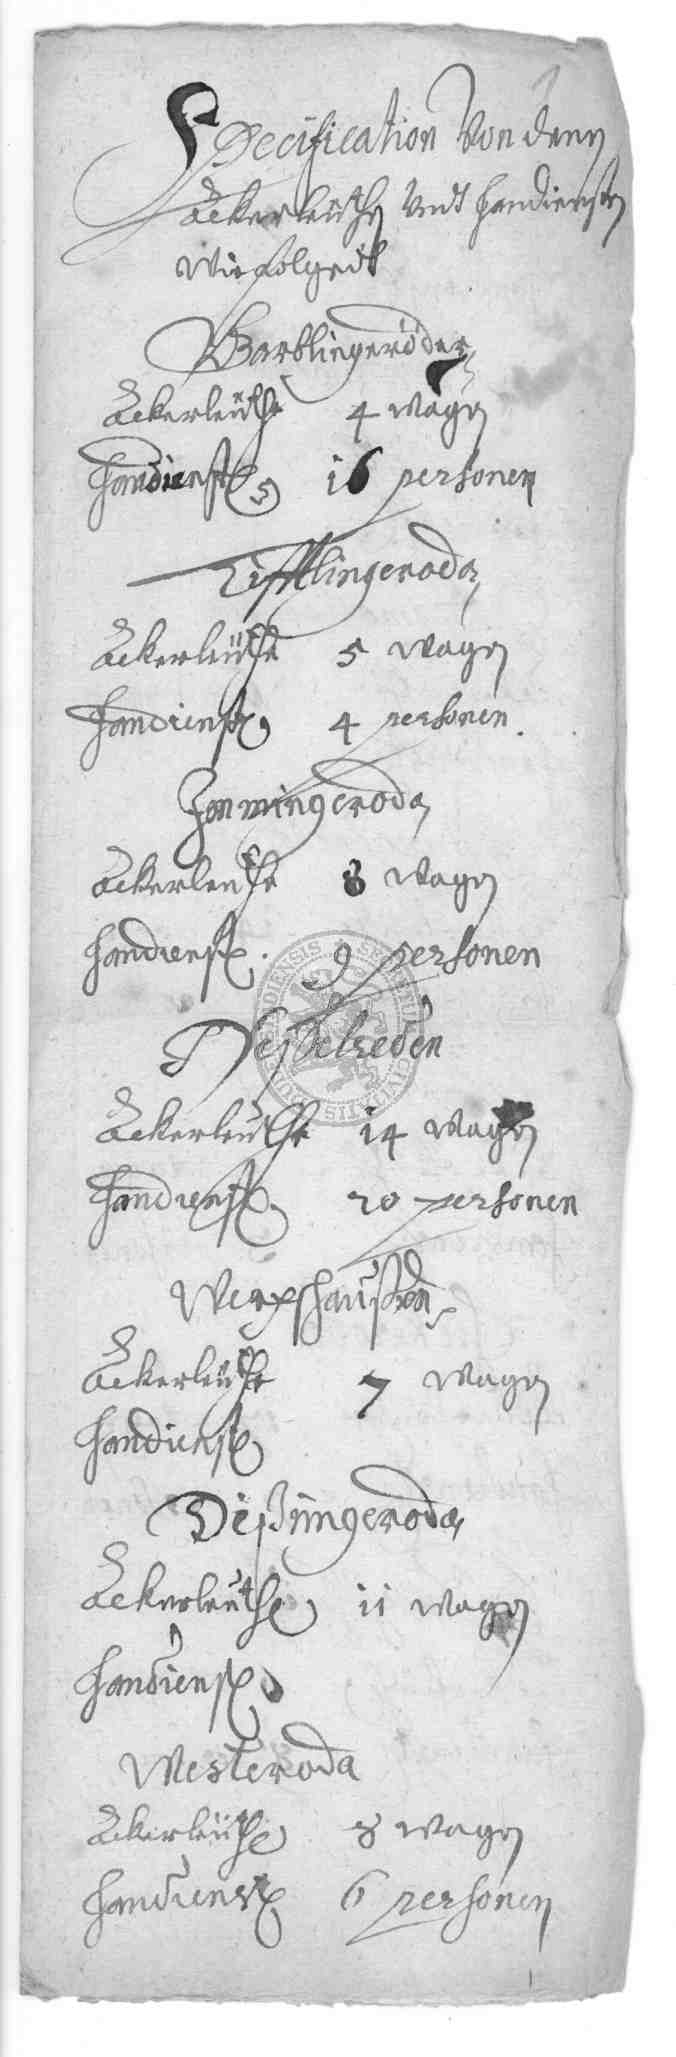 Specification Von denen
Ackerleuthen Undt Handiensten
wie folgedt
Gerblingeröder
Ackerleüthe 4 wagen
Handienste 16 personen
Tifftlingeroda
Ackerleüthe 5 wagen
Handienste 4 personen.
Immingeroda
Ackerleuthe 8 wagen
Handienste 9 personen
SECRETUM CIVITATIS
Nesselreden
Ackerleuthe 14 wagen
Handienste 20 personen
Werxshaußen
Ackerleuthe 7 wagen
Handienste
Dißingeroda
Ackerleuthe 11 wagen
Handienste
Westeroda
Ackerleüthe 8 wagen
Handienste 6 personen